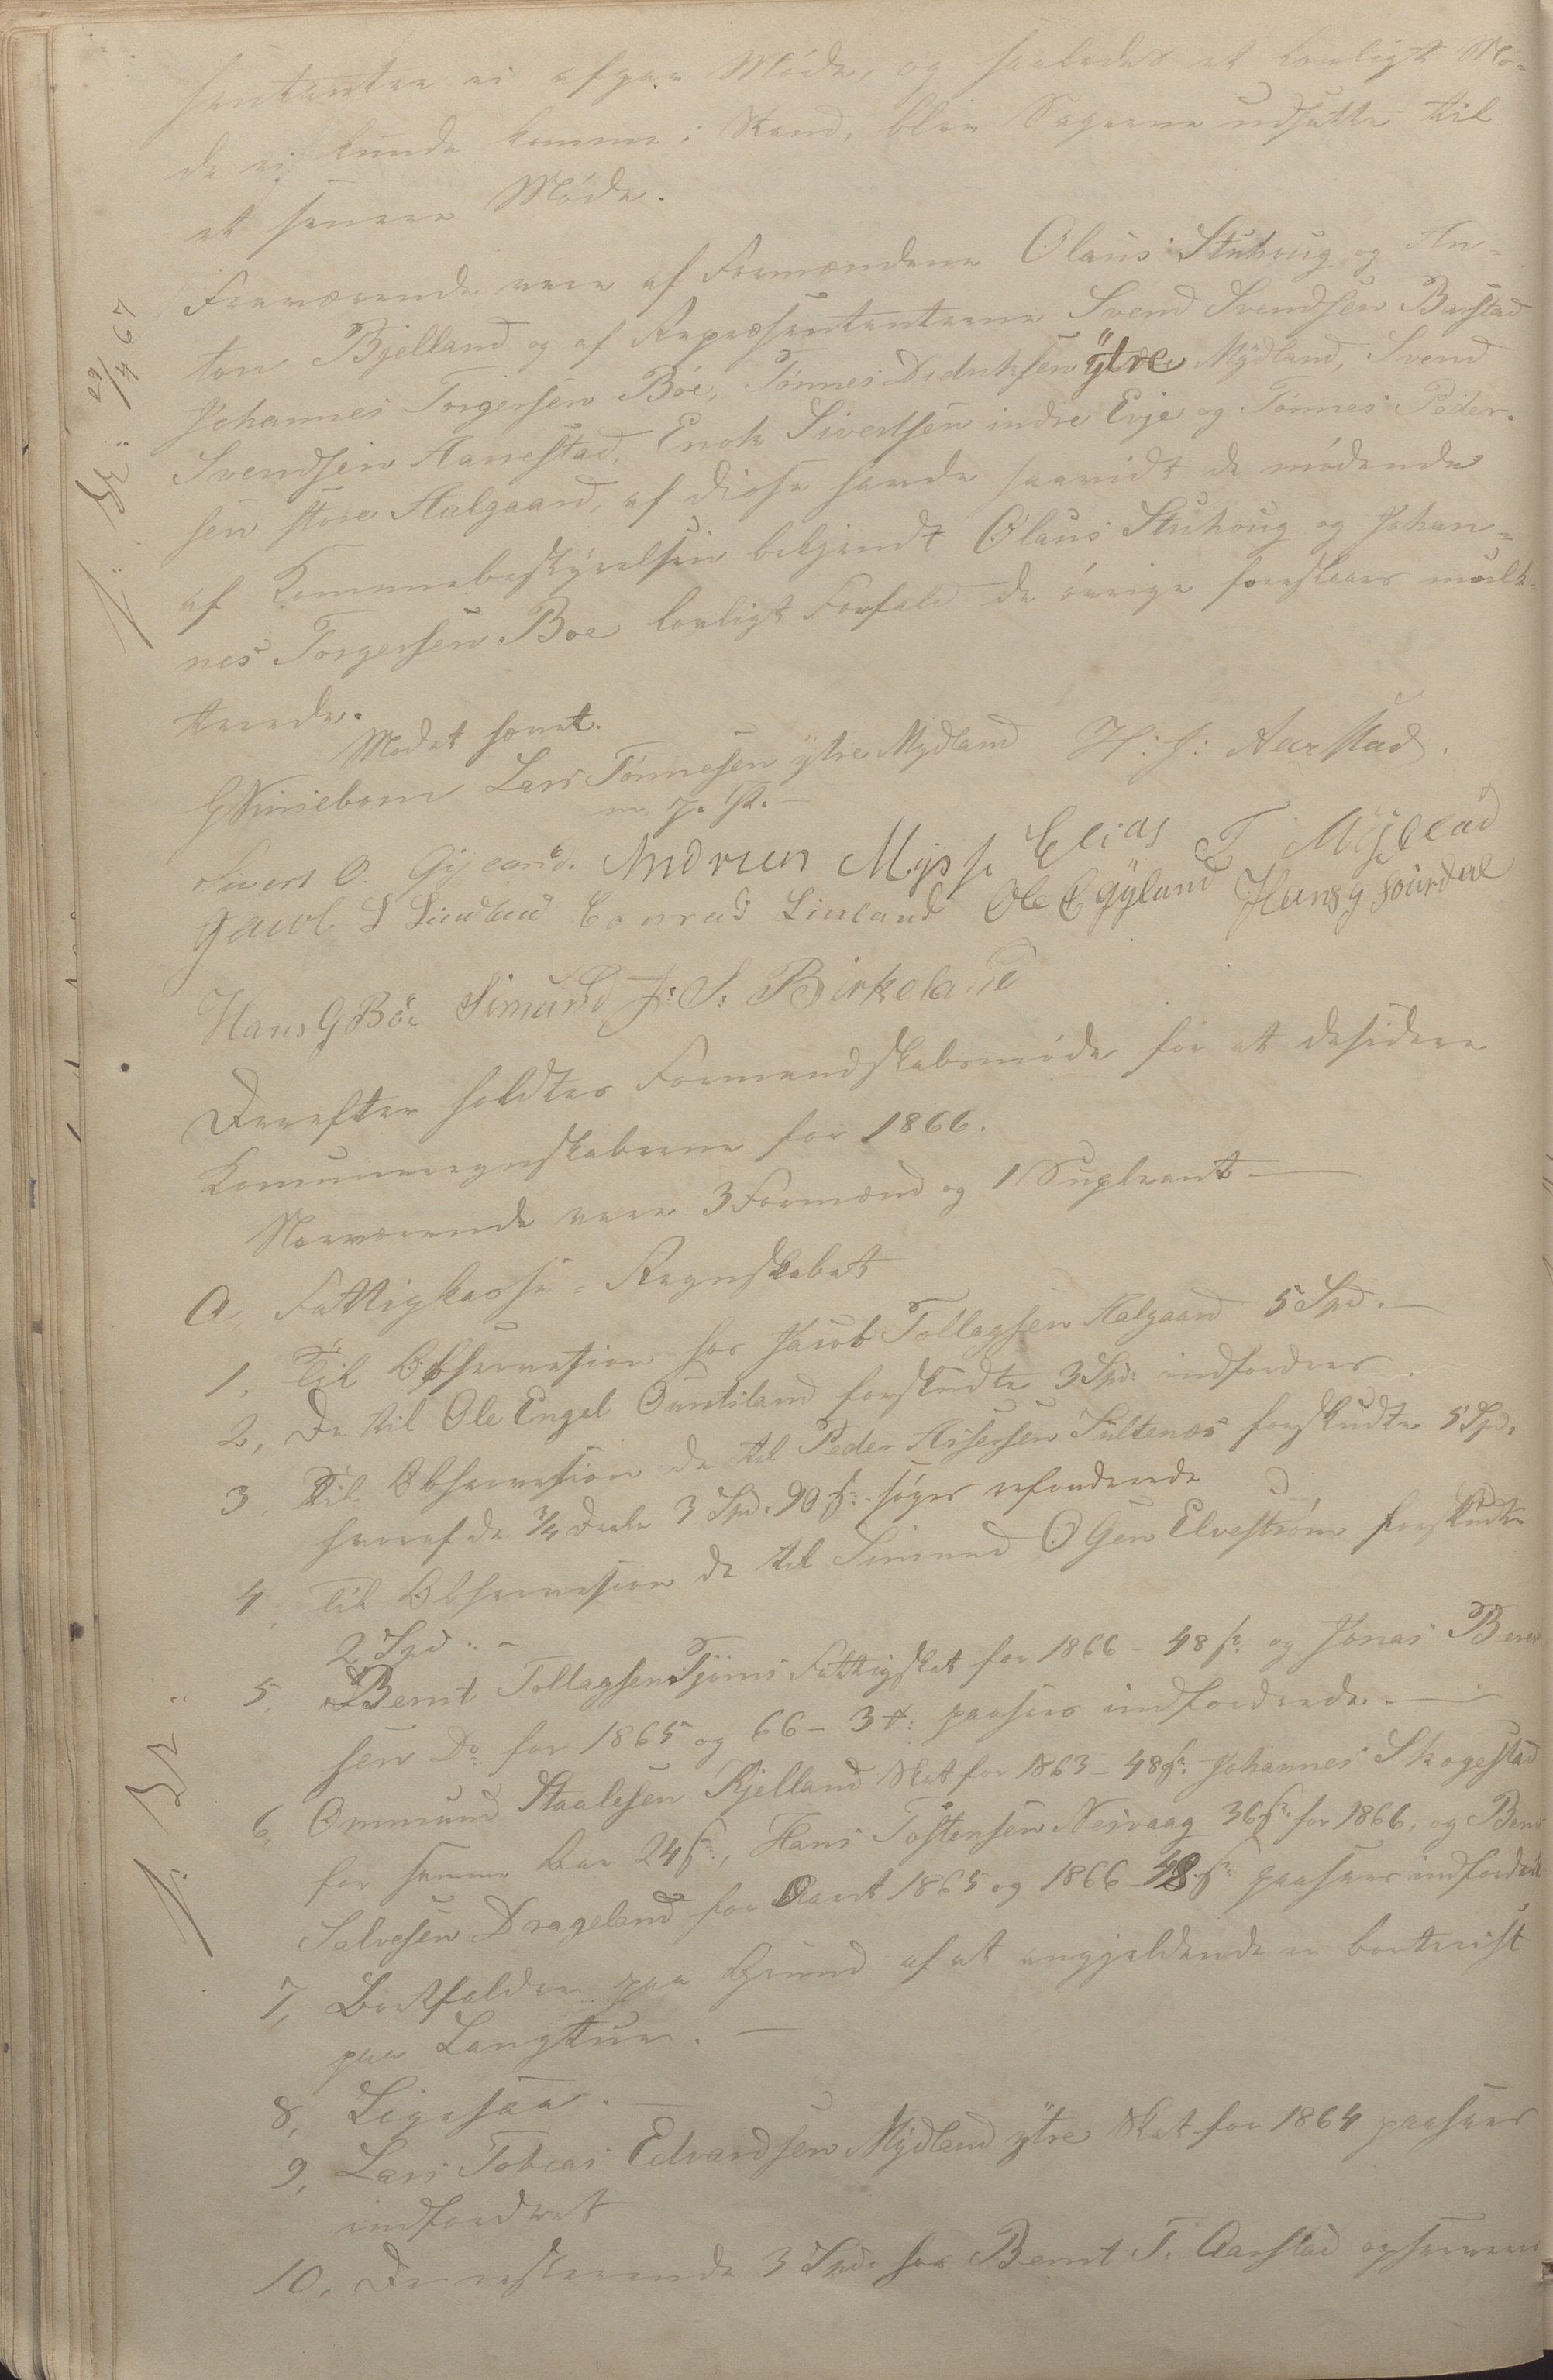 sentanter ei afgav Møde, og saaledes et lovligt Mø-
de ei kunde komme i Stand, blev Sagerne udsatte til
et senere Møde.
Fraværende vare af Formændene Olaus Stuhoug og An-
ton Bjelland og af Repræsentanterne Svend Svendsen Barstad
Johannes Torgersen Bøe, Tønnes Didriksen ÿtre Mÿdland, Svend
Svendsen Aanestad, Enok Sivertsen indre Evje og Tønnes Peder-
sen store Aalgaard, af disse havde saavidt de mødende
af Kommunebestÿrelsen bekjendt Olaus Stuhoug og Johan-
nes Torgersen Boe lovligt Forfald de øvrige foreslaaes mulk-
terede.
Mødet hævet.
Lars Tønnesen ÿtre Mÿdland H: J: Aarstad.
m. p. P.
Sivert O. Gÿland. Andreas Mÿsse Elias T Mÿdland
Jacob S Lindland Conrad Linland Ole E Gÿland Hans G Suirdal
Hans G Bøe Simund J: S: Birkeland
Derefter holdtes Formandskabsmøde for at desidere
Kommuneregnskaberne for 1866.
Nærværende vare 3 Formænd og 1 Supleant
A, Fattigkasse-Regnskabet
1, Til Observation hos Jacob Tollagsen Aalgaard 5 Spd.
2, De til Ole Engel Ountiland forskudte 3 Spd: indfordres
3, Til Observation de til Peder Assersen Sultenæs forskudte 5 Spd.
heraf de 3/4 Dele 3 Spd. 90 s: søges refonderede
4, Til Observation de til Simund Olsen Elvestrøm forskudte
2 Spd. -
5, Bernt Tollagsen Tjørns Fattigskat for 1866 - 48 s: og Jonas Bernt
sen Do for 1865 og 66 - 3 paasees indfordrede.
6, Ommund Staalesen Kjelland Skat for 1863 - 48 s: Johannes Skogestad
for samme Aar 24 s:, Hans Tostensen Nesvaag 36 s: for 1866, og Bernt
Salvesen Drageland for Aaret 1865 og 1866 48 s: paasees indfordrede
7, Bortfalder paa Grund af at angjeldende er bortreist
paa Langtur.
8, Ligesaa.
9, Lars Tobias Edvardsen Mÿdland ÿtre Skat for 1864 paasees
indfordret
10, De resterende 3 Spd. hos Bernt T: Aarstad